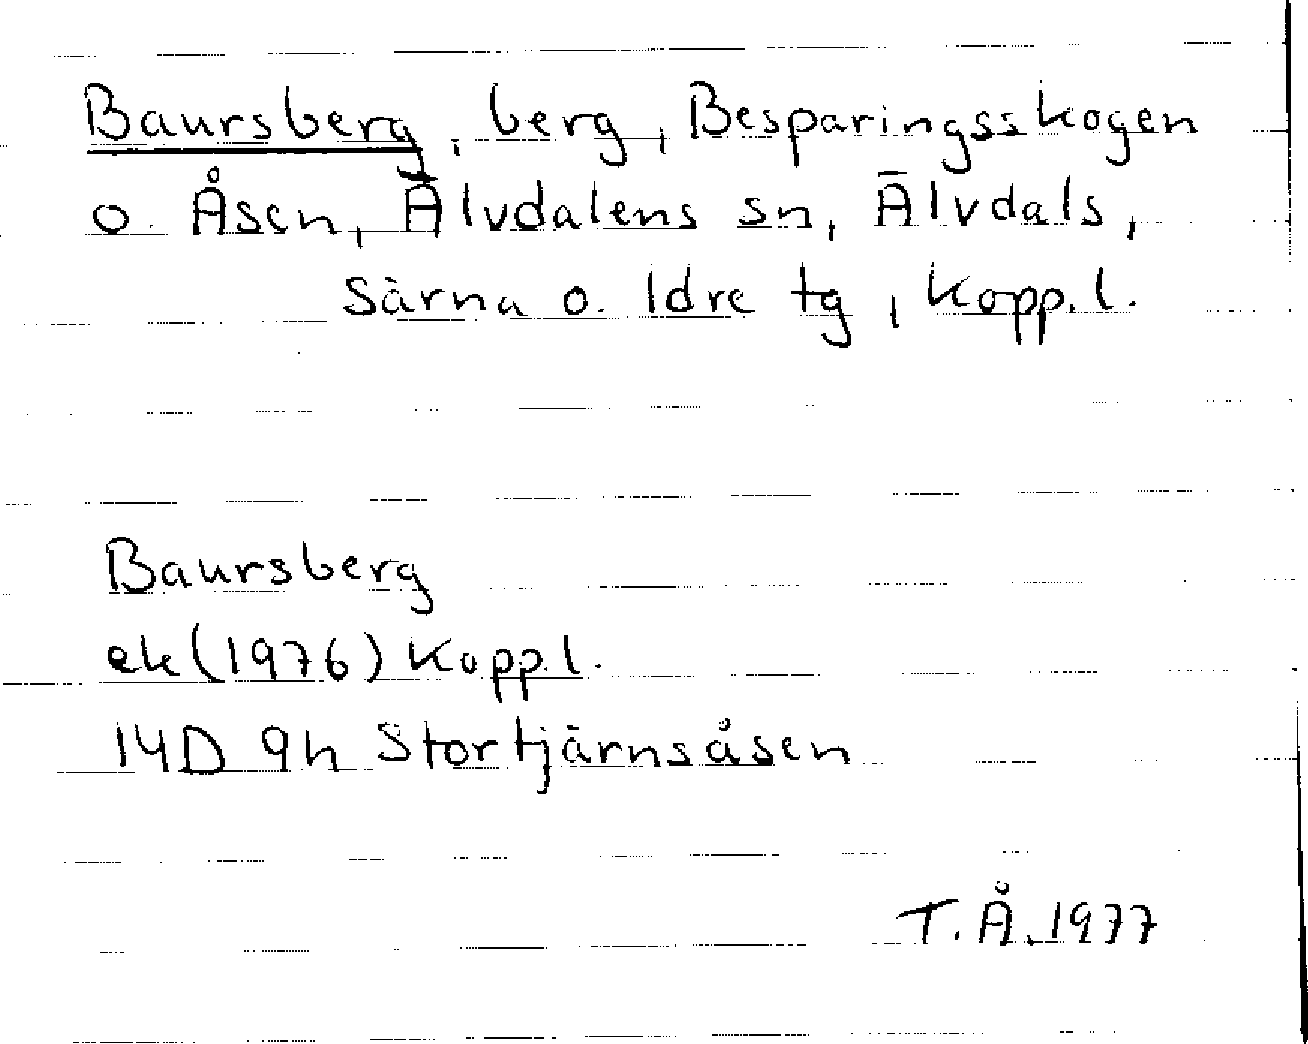 Baursberg, berg, Besparingsskogen
o. Åsen, Älvdalens sn, Älvdals,
Särna o. Idre tg, Kopp.l.
Baursberg
ek (1976) Kopp.l.
14D 9h Stortjärnsåsen
T.Å. 1977